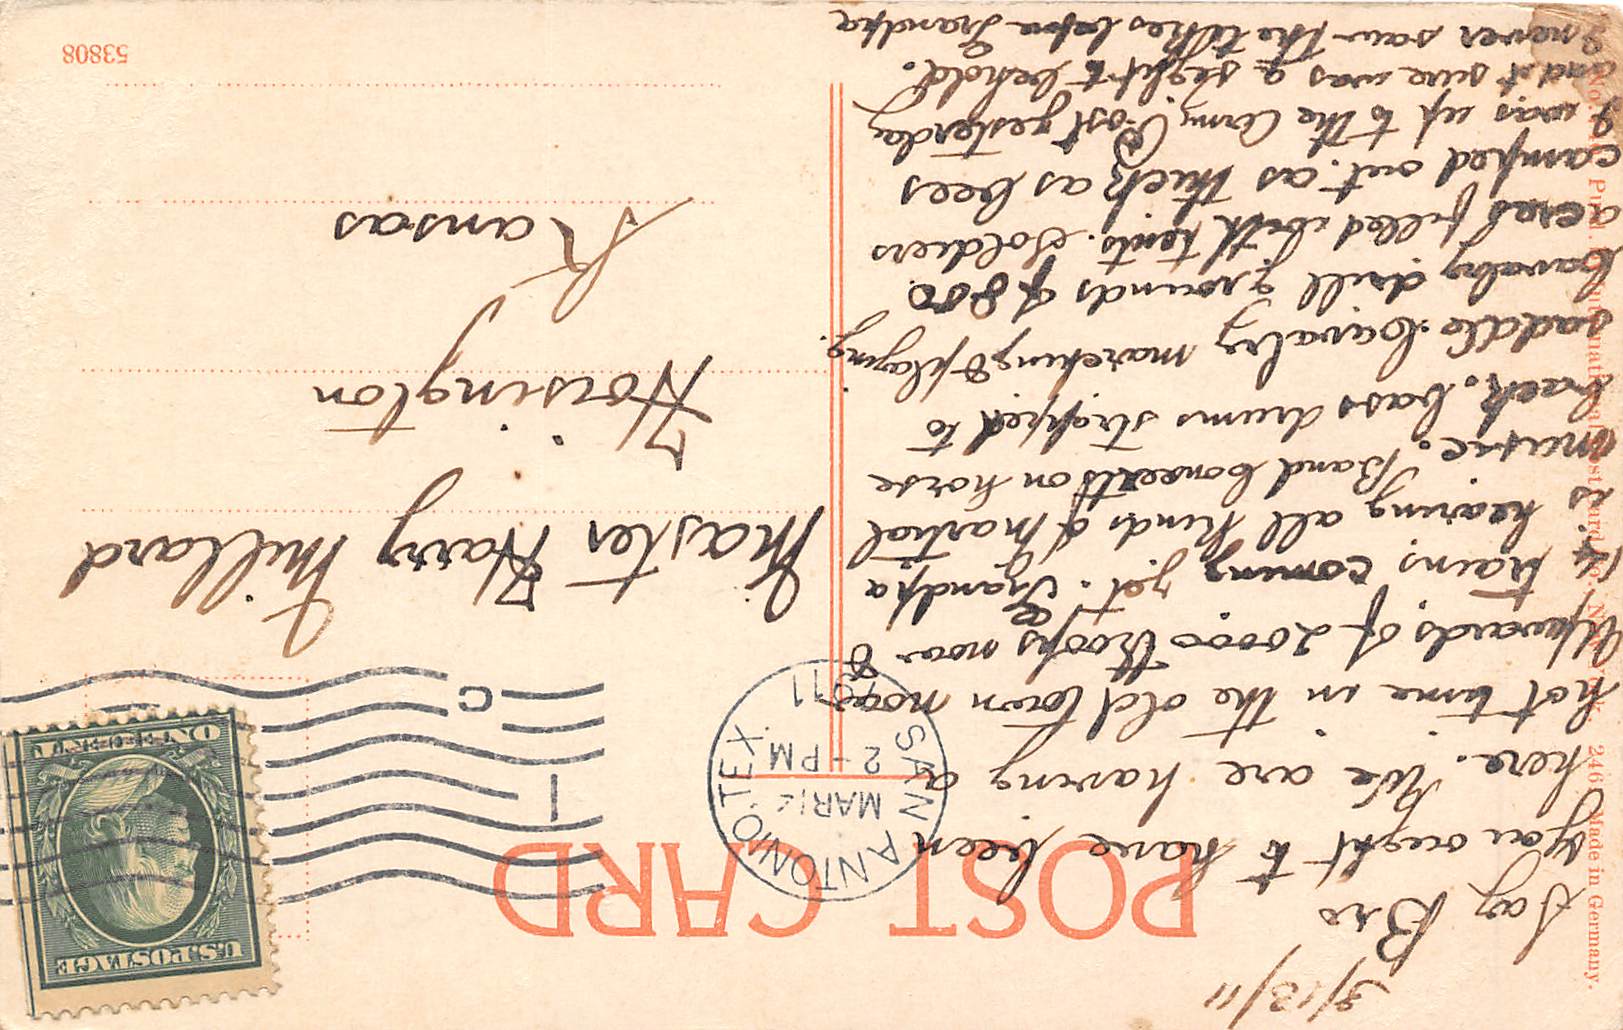 3/13/11
Say Bro
You ought to have been
here. We are having a
hot time in the old town now
Upwards of 20000 troops now &
14 trains coming yet. Grandpa
is hearing all kinds of martial
music. Band Concerts on horse
back. bass drums strapped to
saddle. Cavalry marching & playing.
Cavalry drill grounds of 800
acres filled with tents. Soldiers
camped out. as thick as bees
I was up to the Army Post yesterday
and it sure was a sight to behold.
I never saw the likes before Grandpa
POST CARD
SAN ANTONIO TEX.
MAR 14
2-PM
1911
1
C
U.S. POSTAGE
ONE CENT
Master Harry Millard
Hoisington
Kansas
53808
Made in Germany.